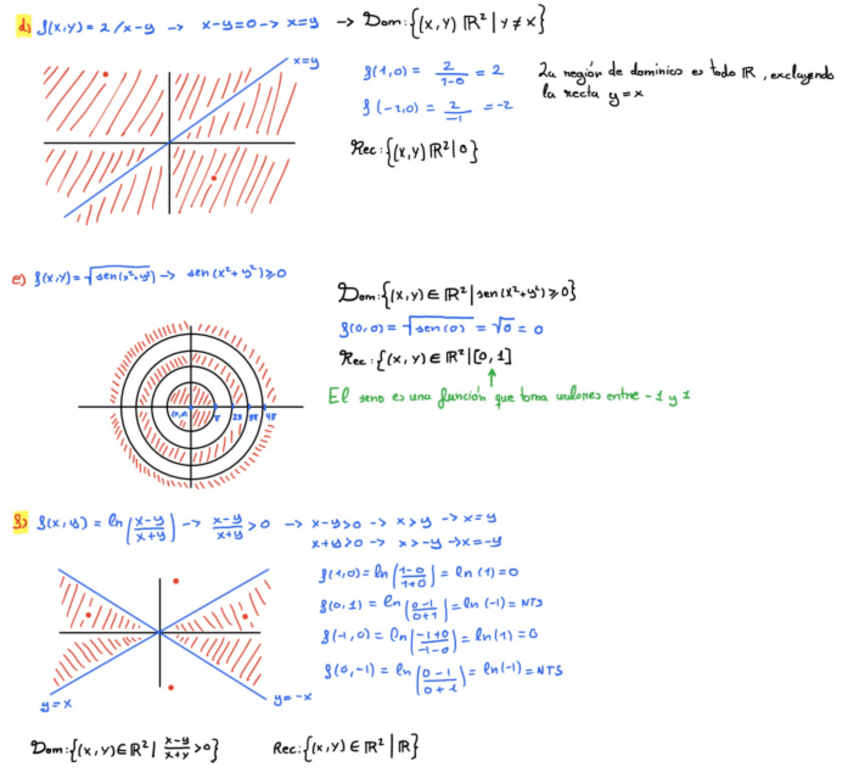 d) f(x,y) = 2/x-y -> x-y=0 -> x=y -> Dom:{(x,y) ℝ² | y ≠ x}
x=y
f(1,0) = 2/(1-0) = 2
La región de dominio es todo ℝ, excluyendo
la recta y=x
f(-1,0) = 2/-1 = -2
Rec:{(x,y) ℝ² | 0}
e) f(x,y) = √sen(x²+y²) -> sen(x²+y²) ≥ 0
Dom:{(x,y) ∈ ℝ² | sen(x²+y²) ≥ 0}
f(0,0) = √sen(0) = √0 = 0
Rec:{(x,y) ∈ ℝ² | [0,1]
El seno es una función que toma valores entre -1 y 1
(0,0) π 2π 3π 4π
f) f(x,y) = ln((x-y)/(x+y)) -> (x-y)/(x+y) > 0 -> x-y>0 -> x>y -> x=y
x+y>0 -> x>-y -> x=-y
f(1,0) = ln((1-0)/(1+0)) = ln(1) = 0
f(0,1) = ln((0-1)/(0+1)) = ln(-1) = NTS
f(-1,0) = ln((-1+0)/(-1-0)) = ln(1) = 0
f(0,-1) = ln((0-1)/(0+1)) = ln(-1) = NTS
y=x
y=-x
Dom:{(x,y) ∈ ℝ² | (x-y)/(x+y) > 0}
Rec:{(x,y) ∈ ℝ² | ℝ}